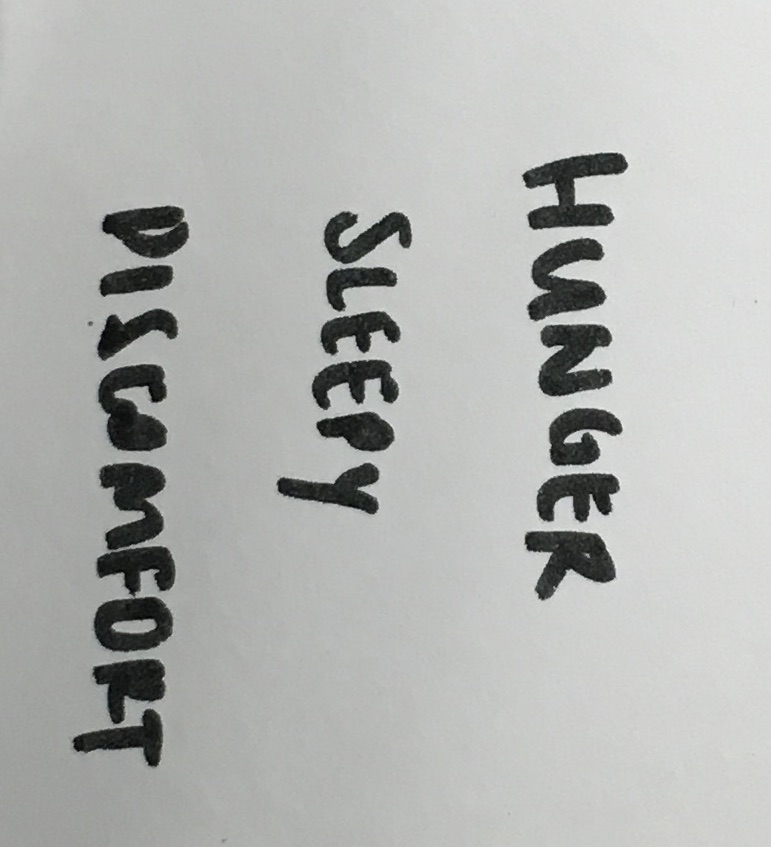 HUNGER
SLEEPY
DISCOMFORT